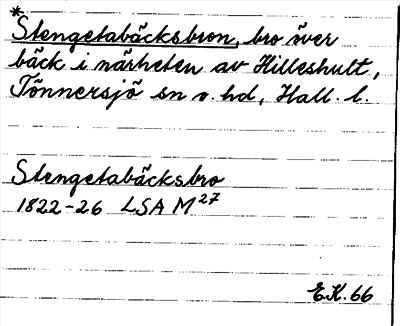 *
Stengetabäcksbron, bro över
bäck i närheten av Hilleshult,
Tönnersjö sn o. hd, Hall. l.
Stengetabäcksbro
1822-26 LSA M²⁷
E.K. 66